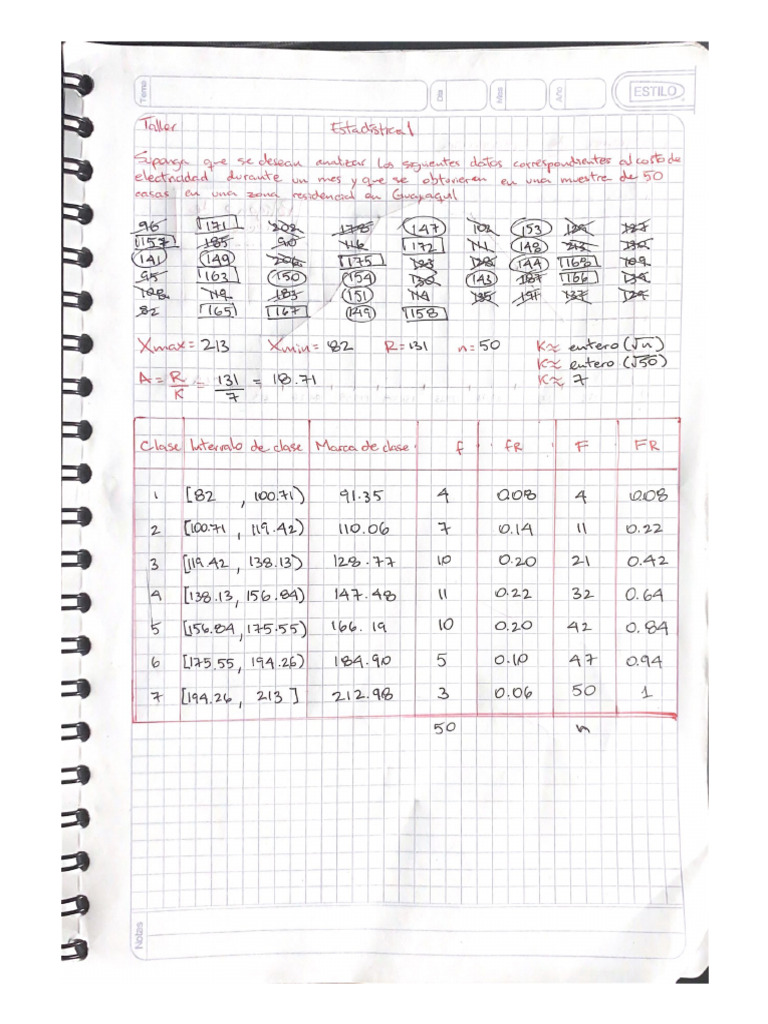 Tema
Día
Mes
Año
ESTILO
Taller Estadística 1
Suponga que se desean analizar los siguientes datos correspondientes al costo de
electricidad durante un mes y que se obtuvieron en una muestra de 50
casas en una zona residencial en Guayaquil
96 171 202 178 147 102 153 129 127
157 185 90 116 172 111 148 213 130
141 149 206 175 123 128 144 168 109
95 163 150 154 130 143 187 166 139
108 119 183 151 114 135 191 137 129
82 165 167 149 158
Xmax = 213 Xmin = 82 R = 131 n = 50 K ≈ entero (√n)
K ≈ entero (√50)
A = R/K = 131/7 = 18.71 K ≈ 7
Clase Intervalo de clase Marca de clase f fR F FR
1 [82 , 100.71) 91.35 4 0.08 4 0.08
2 [100.71 , 119.42) 110.06 7 0.14 11 0.22
3 [119.42 , 138.13) 128.77 10 0.20 21 0.42
4 [138.13 , 156.84) 147.48 11 0.22 32 0.64
5 [156.84 , 175.55) 166.19 10 0.20 42 0.84
6 [175.55 , 194.26) 184.90 5 0.10 47 0.94
7 [194.26 , 213 ] 212.98 3 0.06 50 1
50 n
Notas